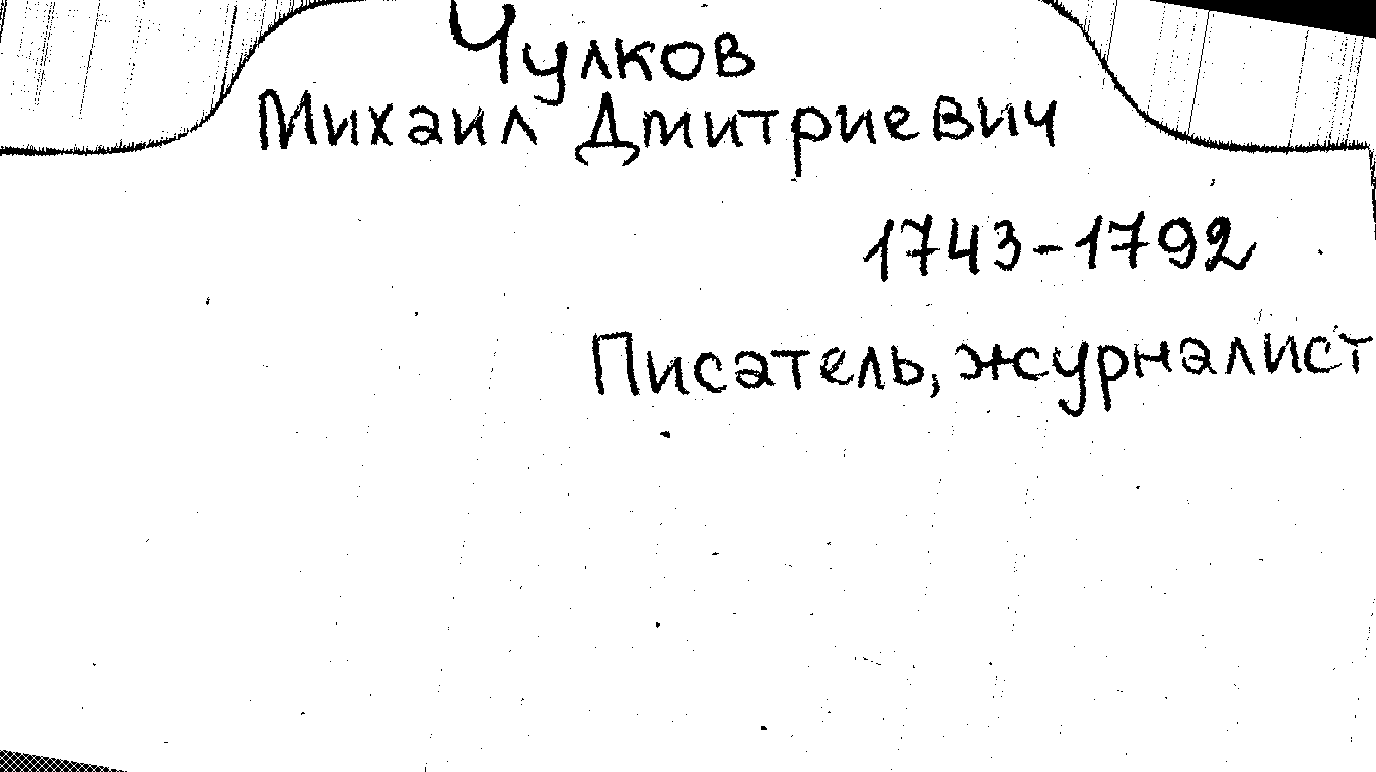 Чулков
Михаил Дмитриевич
1743-1792
Писатель, журналист